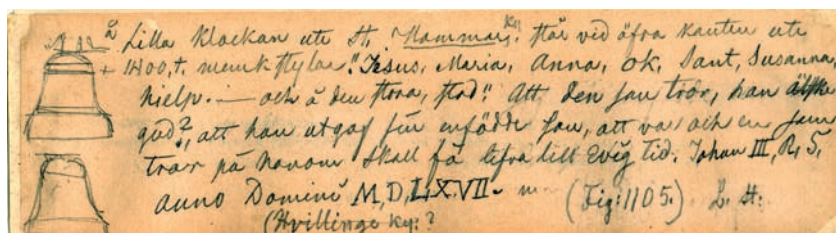 å Lilla Klockan ute St. Hammars Ky: står vid öfra kanten ute
1400,t. munkstylar: "Jesus, Maria, Anna, ok, Sant, Susanna,
hielp. — och å den stora, stod: Att den jau tror, han
gud?, att han utgaf sin enfödde son, att var och en som
tror på honom skall få lifva till Evig tid. Johan III, R. S.
anno Domini M,D,LXVII.
(Fig: 1105.) L. H.
(Hvillinge ky: ?